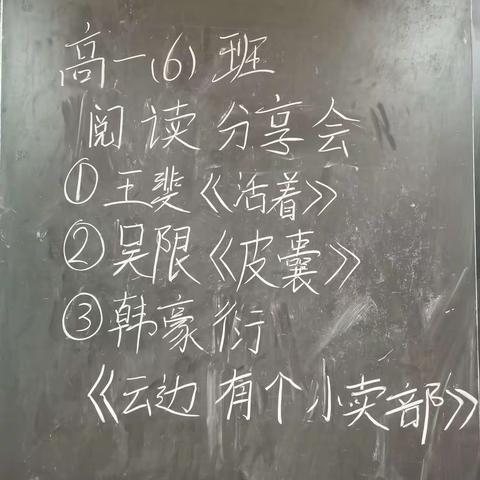 高一(6)班
阅读分享会
①王斐《活着》
②吴限《皮囊》
③韩豪衍
《云边有个小卖部》